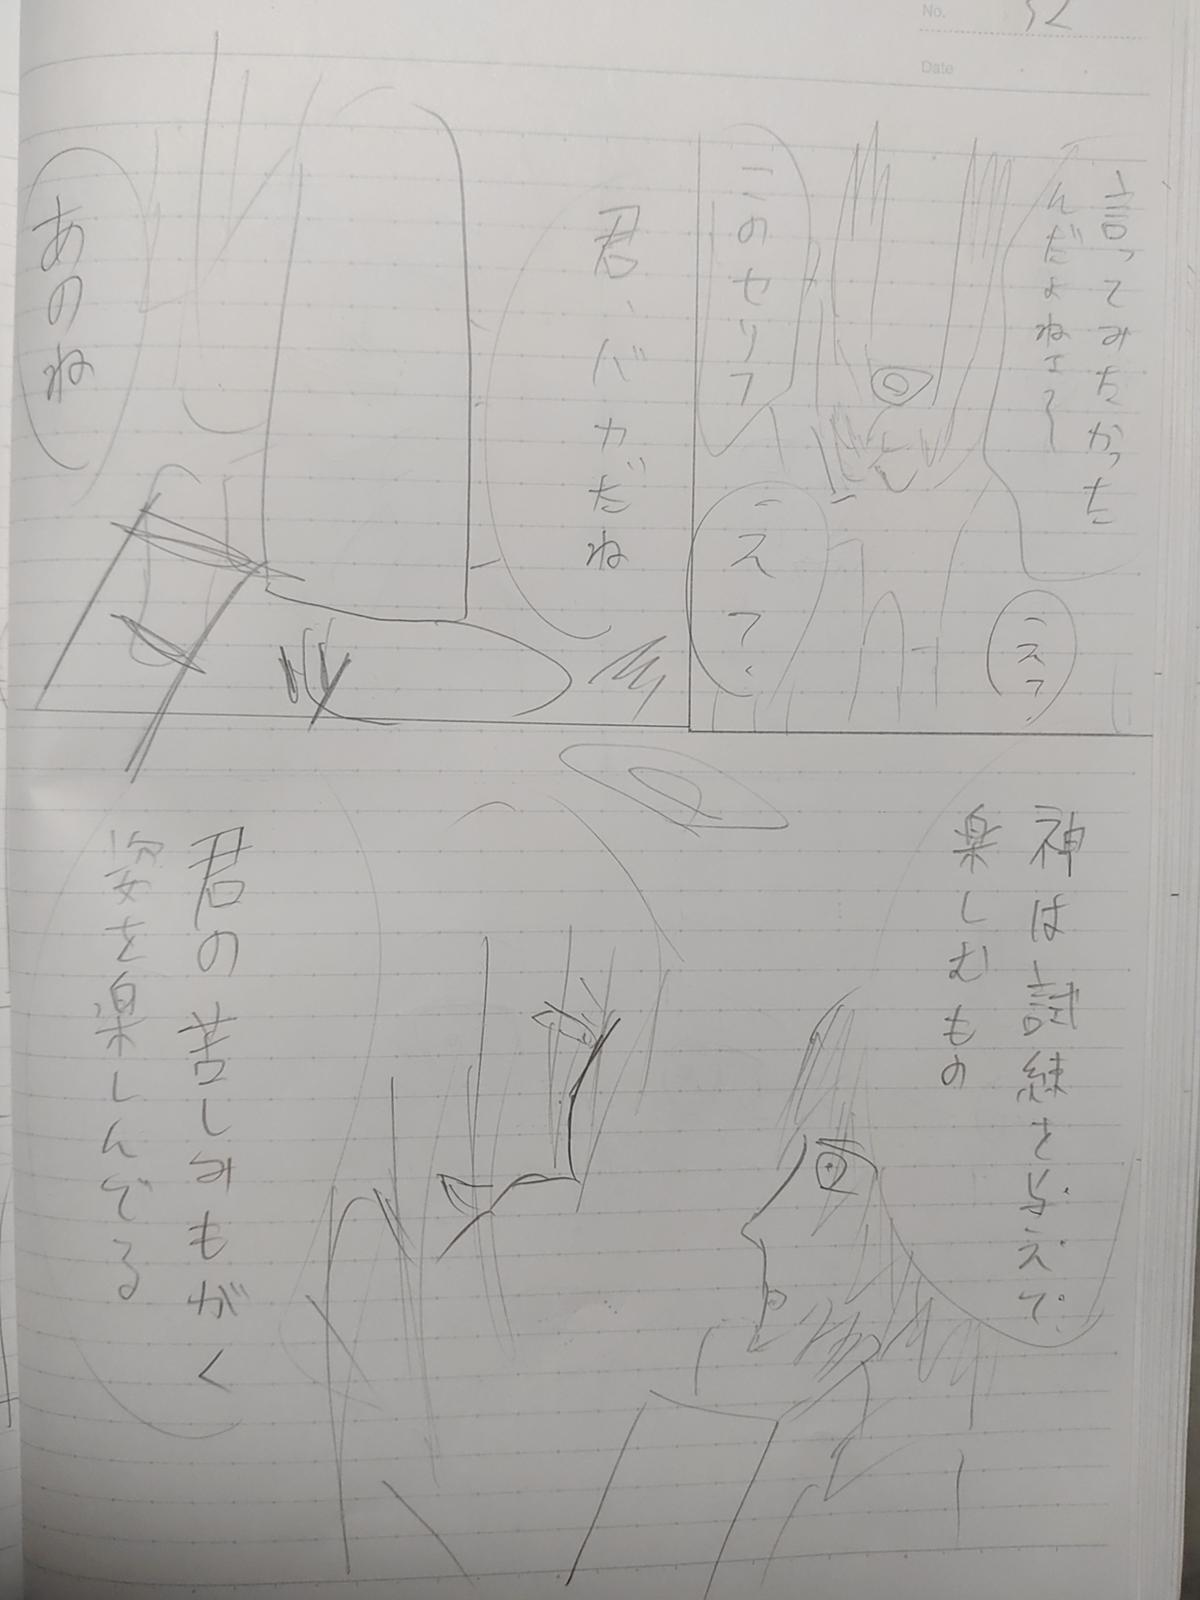 No.
Date
言ってみたかった
んだよねェ〜
このセリフ
君、バカだね
あのね
神は試練を与えて
楽しむもの
君の苦しみもがく
姿を楽しんでる